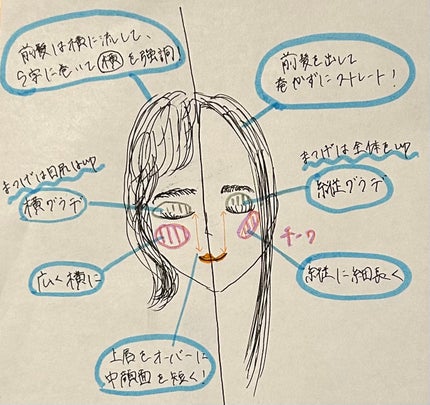 前髪は横に流して、
S字に巻いて横を強調!
前髪を出して
巻かずにストレート!
まつげは目尻はup
横グラデ
まつげは全体をup
縦グラデ
チーク
広く横に
縦に細長く
上唇をオーバーに
中顔面を短く!